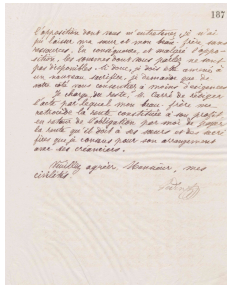 187
l'opposition dont vous m'entretenez, je n'ai
pu laisser ma sœur et mon beau-frère sans
ressources. En conséquence et malgré l'oppo-
sition, les sommes dont vous parlez ne sont
pas disponibles. Si donc je dois être amené à
un nouveau sacrifice, je demande que de
votre côté vous consentiez à moins d'exigences.
Je charge, du reste, M. de rédiger
l'acte par lequel mon beau-frère me
rétrocède la rente constituée à son profit,
en retour de l'obligation par moi de payer
la rente qu'il doit à ses sœurs et des sacri-
fices que je consens pour son arrangement
avec ses créanciers.
Veuillez agréer, Monsieur, mes
civilités.